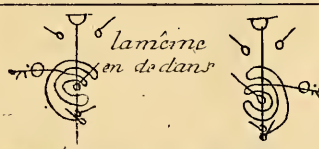 la même
en dedans